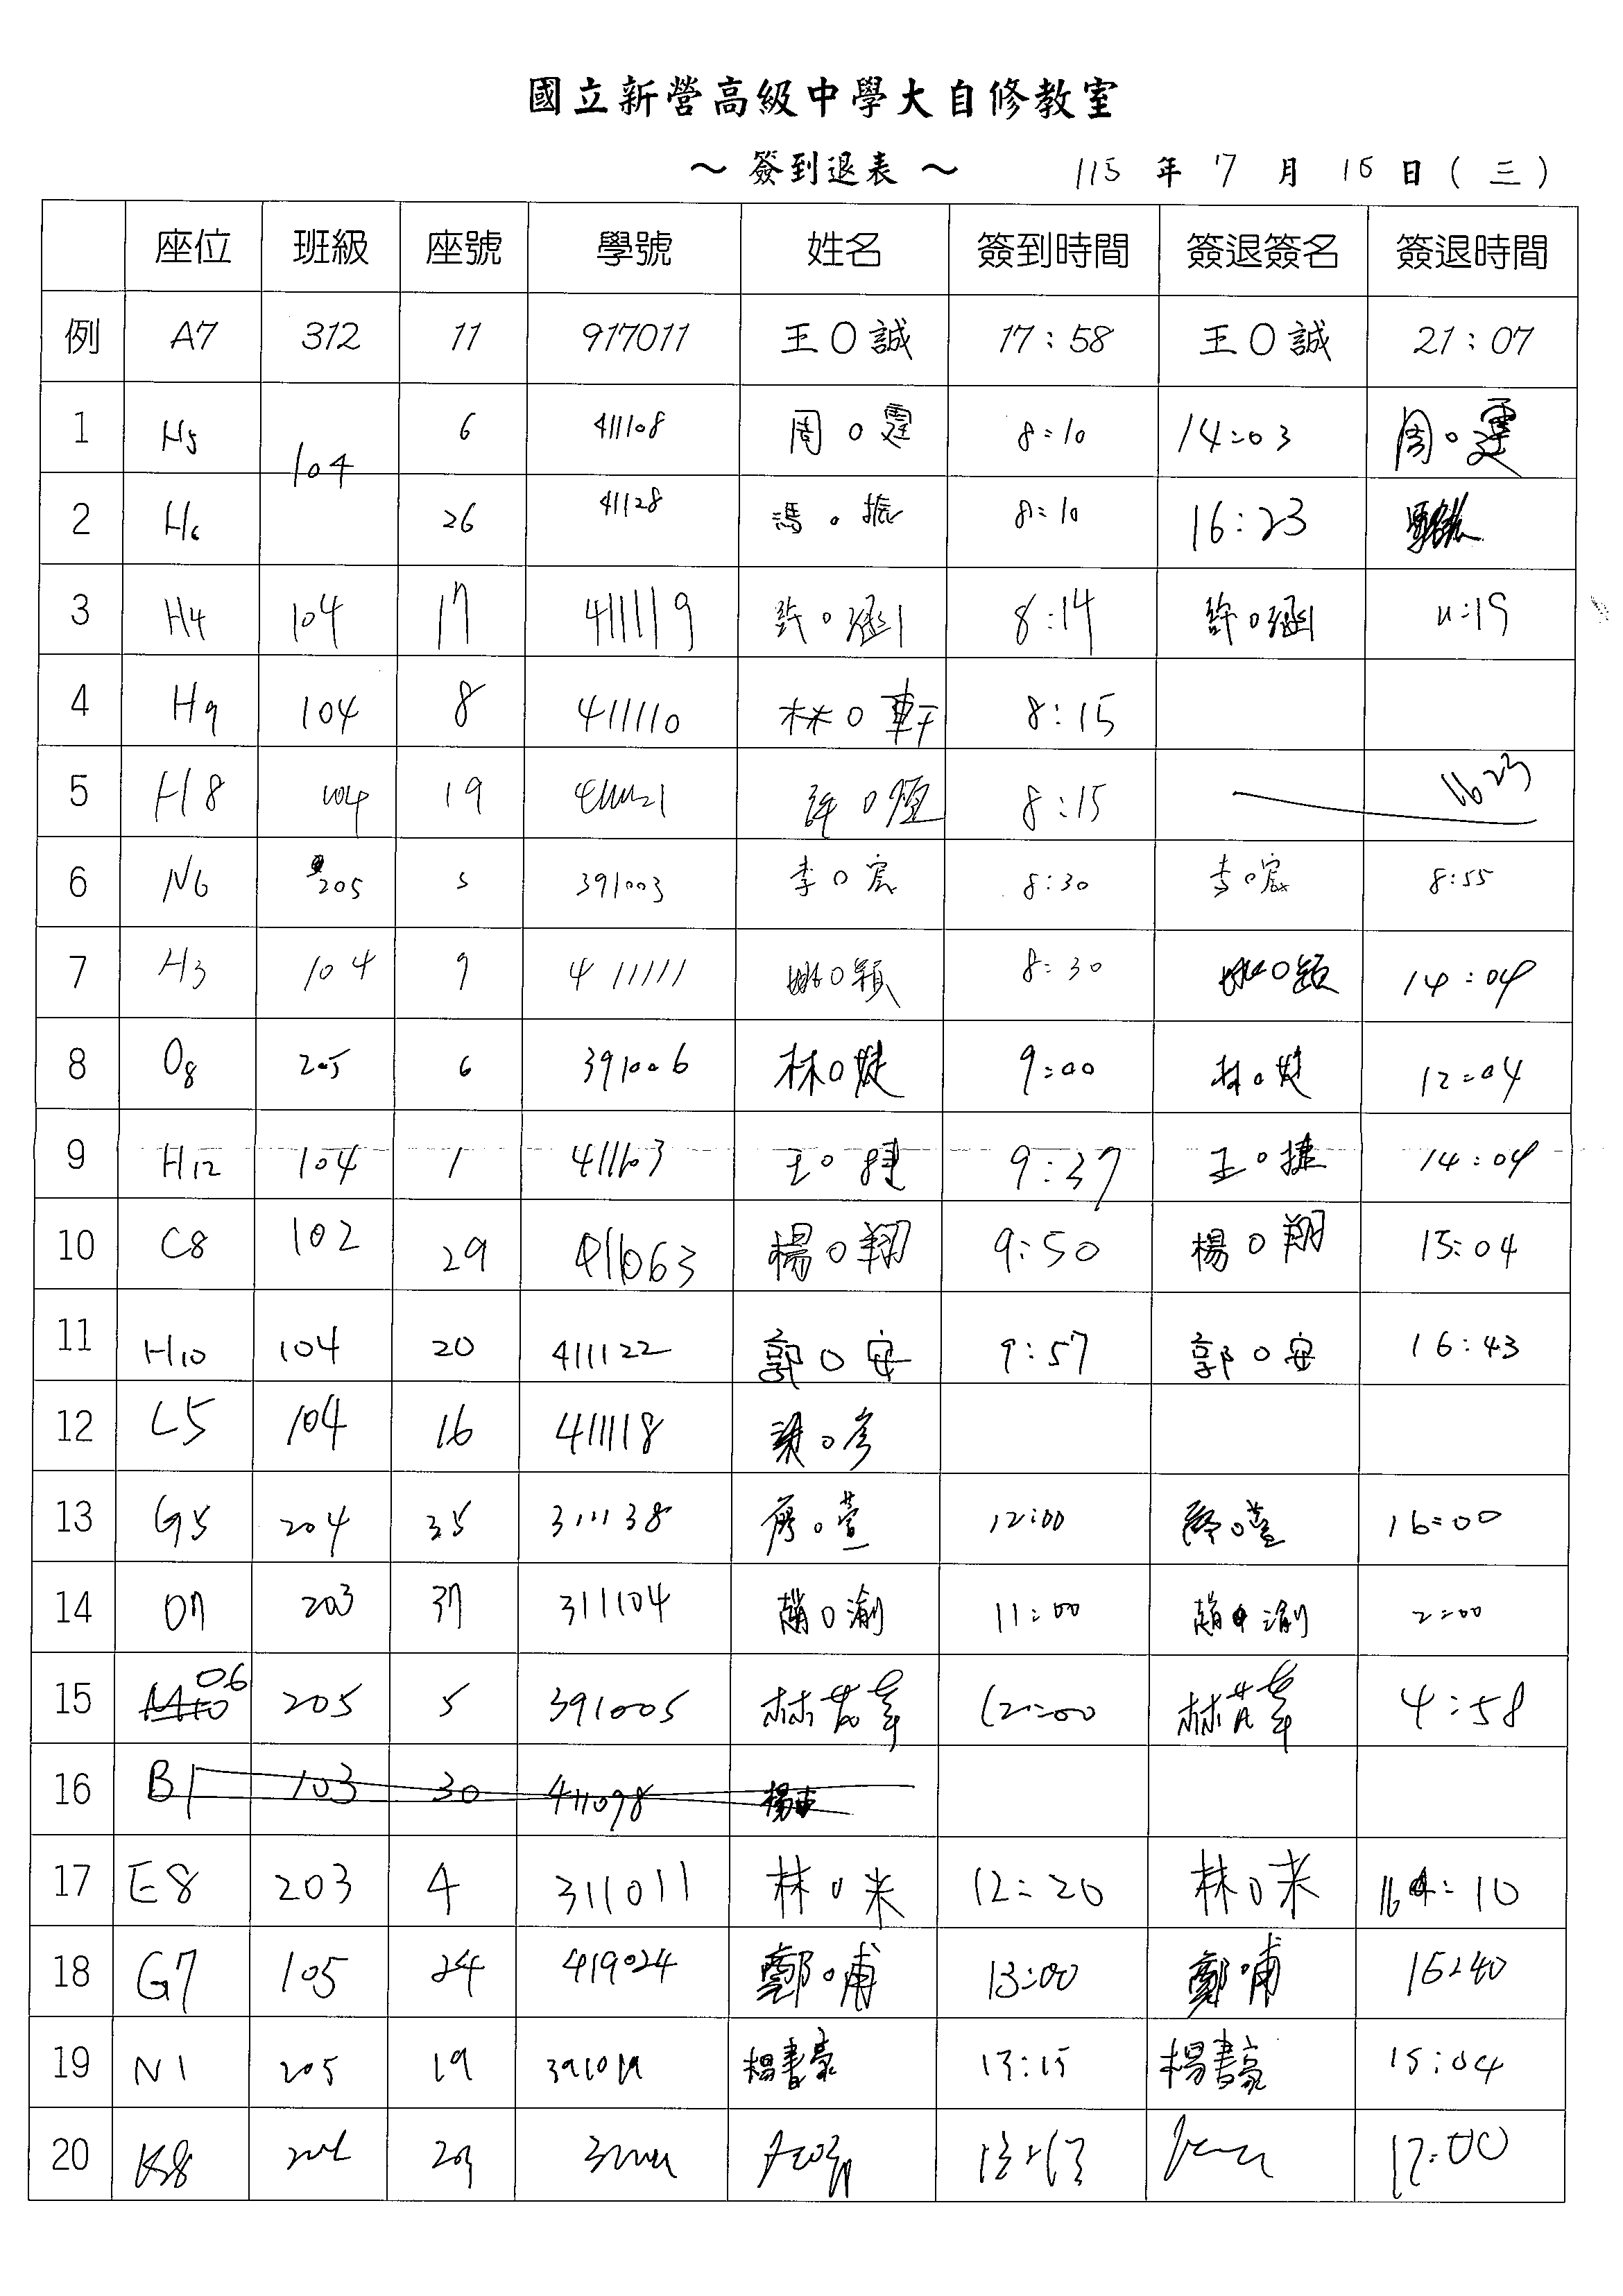 國立新營高級中學大自修教室
～ 簽到退表 ～ 115 年 7 月 15 日 ( 三 )
座位 班級 座號 學號 姓名 簽到時間 簽退簽名 簽退時間
例 A7 312 11 917011 王O誠 17:58 王O誠 21:07
1 H5 104 6 411108 周O霆 8:10 14:03 周O霆
2 H6 26 41128 馮O振 8:10 16:23
3 H4 104 17 411119 許O涵 8:14 許O涵 11:19
4 H9 104 8 411110 林O軒 8:15
5 H8 104 19 許O恆 8:15 1623
6 N6 205 5 391003 李O宸 8:30 李O宸 8:55
7 H3 104 9 411111 姚O穎 8:30 姚O穎 14:04
8 O8 205 6 391006 林O婕 9:00 林O婕 12:04
9 H12 104 1 411103 王O捷 9:37 王O捷 14:04
10 C8 102 29 411063 楊O翔 9:50 楊O翔 15:04
11 H10 104 20 411122 郭O安 9:57 郭O安 16:43
12 L5 104 16 411118 謝O彥
13 G5 204 35 311138 廖O萱 12:00 廖O萱 16:00
14 O7 203 37 311104 趙O渝 11:00 趙O渝 2:00
15 O6 205 5 391005 林芳葶 12:00 林芳葶 4:58
16 B1 103 30 411098 楊
17 E8 203 4 311011 林O米 12:20 林O米 16:10
18 G7 105 24 419024 鄭O甫 13:00 鄭O甫 16:40
19 N1 205 19 391019 楊書豪 13:15 楊書豪 15:04
20 K8 17:00